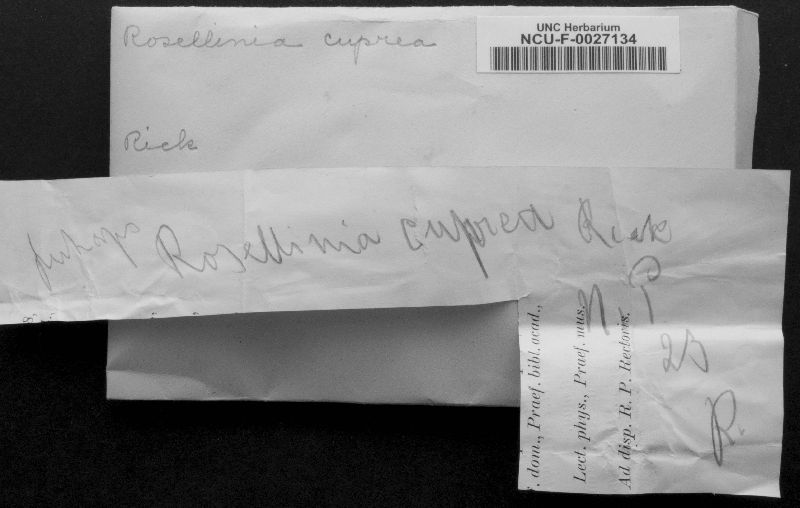 Rosellinia cuprea
UNC Herbarium
NCU-F-0027134
Rick
perhaps Rosellinia cuprea Rick
n P
23
R.
dom., Praef. bibl. acad.,
Lect. phys., Praef. mus.
Ad disp. R. P. Rectoris.